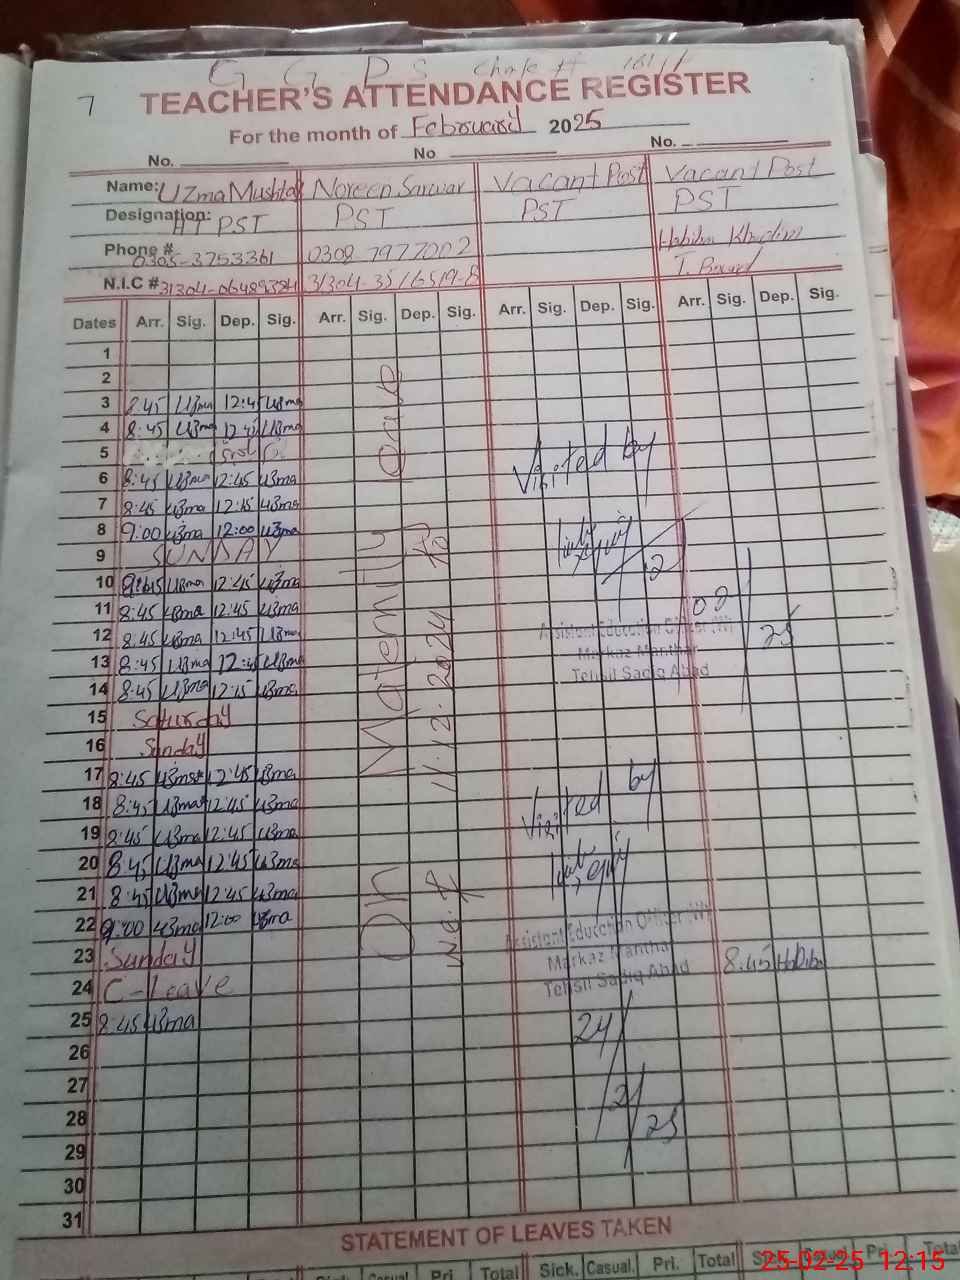 7
G G P S Chak #
TEACHER'S ATTENDANCE REGISTER
For the month of February 2025
No. No No.
Name: Uzma Mushtaq Noreen Sarwar Vacant Post Vacant Post
Designation: HT PST PST PST PST
Phone # 0305-3753361 Habiba Khadim
N.I.C # T. Board
Dates Arr. Sig. Dep. Sig. Arr. Sig. Dep. Sig. Arr. Sig. Dep. Sig. Arr. Sig. Dep. Sig.
1
2
3 8:45 Uzma 12:45 Uzma
4 8:45 Uzma 12:45 Uzma
5
6 8:45 Uzma 12:45 Uzma
7 8:45 Uzma 12:15 Uzma
8 9:00 Uzma 12:00 Uzma
9 SUNDAY
10 Uzma 12:45 Uzma
11 8:45 Uzma 12:45 Uzma
12 8:45 Uzma 12:45 Uzma
13 8:45 Uzma 12:45 Uzma
14 8:45 Uzma 12:15 Uzma
15 Saturday
16 Sunday
17 8:45 Uzma 12:45 Uzma
18 8:45 Uzma 12:45 Uzma
19 8:45 Uzma 12:45 Uzma
20 8:45 Uzma 12:45 Uzma
21 8:45 Uzma 12:45 Uzma
22 9:00 Uzma 12:00 Uzma
23 Sunday
24 C-Leave 8:45 Habiba
25 8:45 Uzma
26
27
28
29
30
31
On Maternity leave
w.e.f 11.12.2024 to
Visited by
Assistant Education Officer (W)
Markaz Manthar
Tehsil Sadiq Abad
Visited by
Assistant Education Officer (W)
Markaz Manthar
Tehsil Sadiq Abad
24/2/25
STATEMENT OF LEAVES TAKEN
Sick. Casual. Pri. Total Sick. Casual. Pri. Total Sick. Casual. Pri. Total
25-02-25 12:15